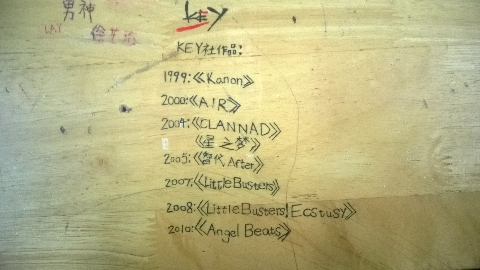 男神
LAY
key
KEY社作品:
1999:《Kanon》
2000:《AIR》
2004:《CLANNAD》
《星之梦》
2005:《智代After》
2007:《LittleBusters》
2008:《LittleBusters!Ecstusy》
2010:《Angel Beats》